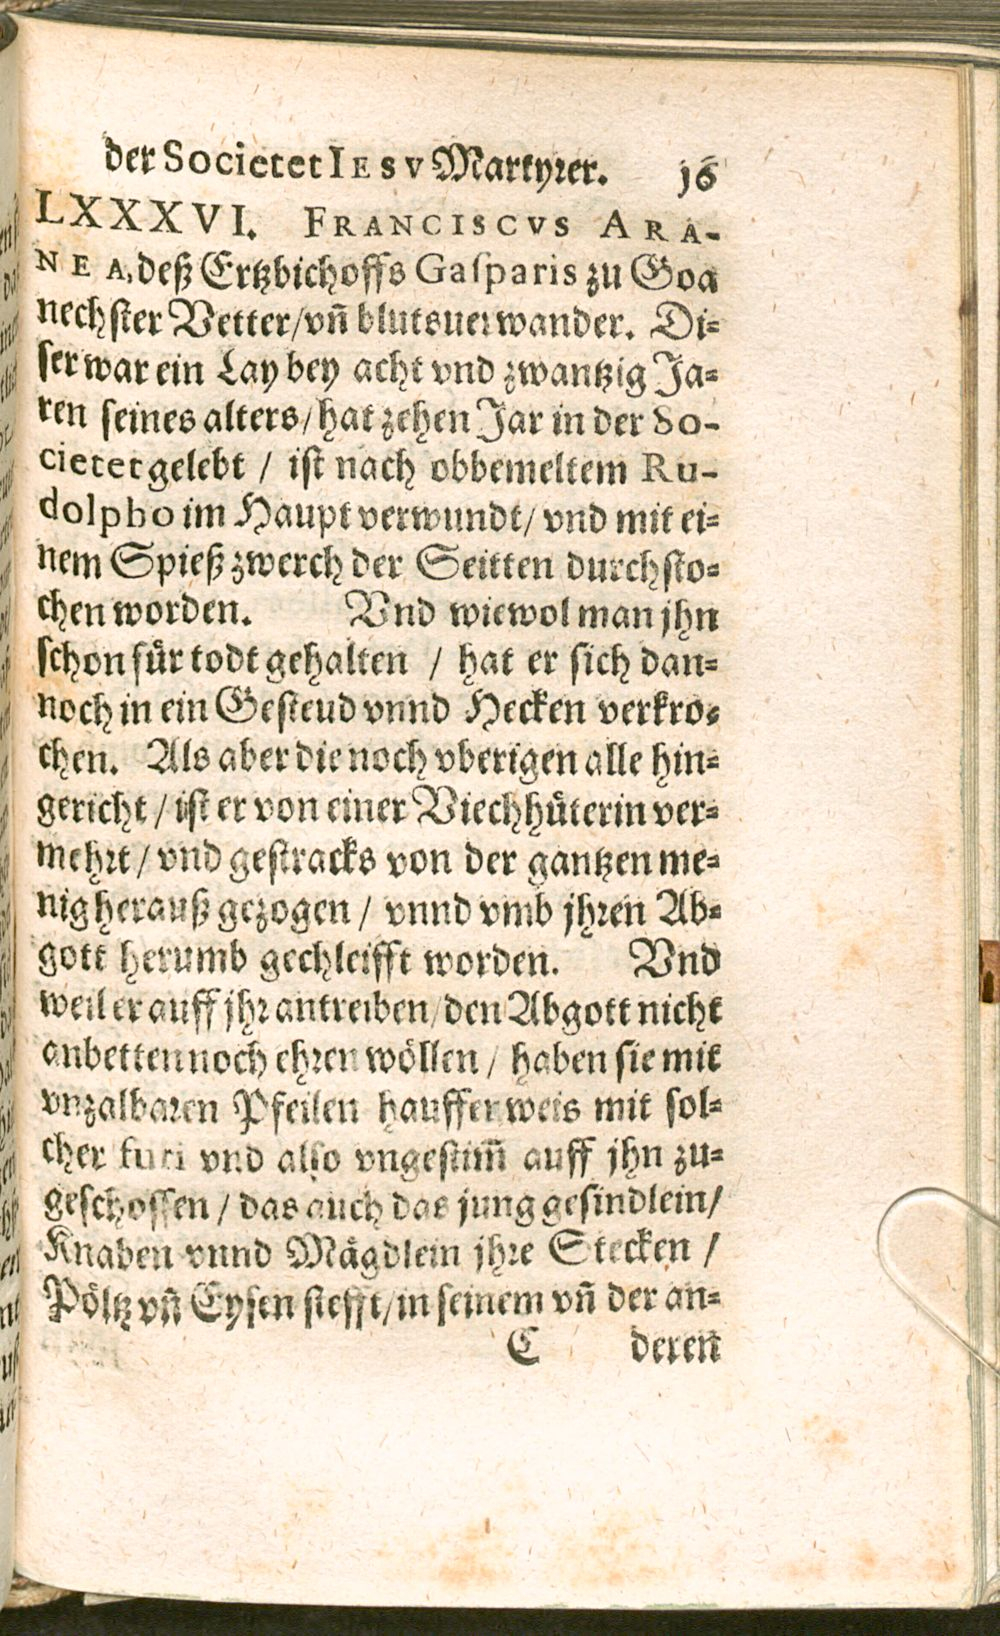 der Societet IESV Martyrer. 16
LXXXVI. FRANCISCVS ARA-
NEA, deß Ertzbichoffs Gasparis zu Goa
nechster Vetter/ vn̄ blutsuerwander. Di-
ser war ein Lay bey acht vnd zwantzig Ja-
ren seines alters/ hat zehen Jar in der So-
cietet gelebt / ist nach obbemeltem Ru-
dolpho im Haupt verwundt/ vnd mit ei-
nem Spieß zwerch der Seitten durchsto-
chen worden. Vnd wiewol man jhn
schon für todt gehalten / hat er sich dan-
noch in ein Gesteud vnnd Hecken verkro-
chen. Als aber die noch vberigen alle hin-
gericht / ist er von einer Viechhüterin ver-
mehrt / vnd gestracks von der gantzen me-
nig herauß gezogen / vnnd vmb jhren Ab-
gott herumb gechleifft worden. Vnd
weil er auff jhr antreiben/ den Abgott nicht
anbetten noch ehren wöllen / haben sie mit
vnzalbaren Pfeilen hauffenweis mit sol-
cher furi vnd also vngestim̄ auff jhn zu-
geschossen / das auch das jung gesindlein/
Knaben vnnd Mägdlein jhre Stecken /
Pöltz vn̄ Eysen stefft/ in seinem vn̄ der an-
C deren